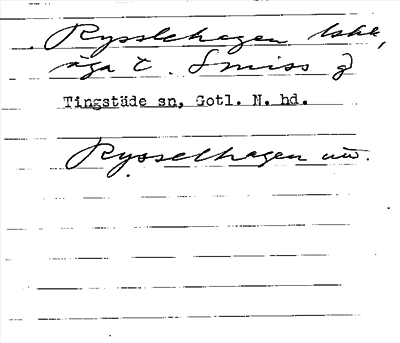 Rysslehagen lskr,
äga t. Smiss g
Tingstäde sn, Gotl. N. hd.
Rysselhagen uw.